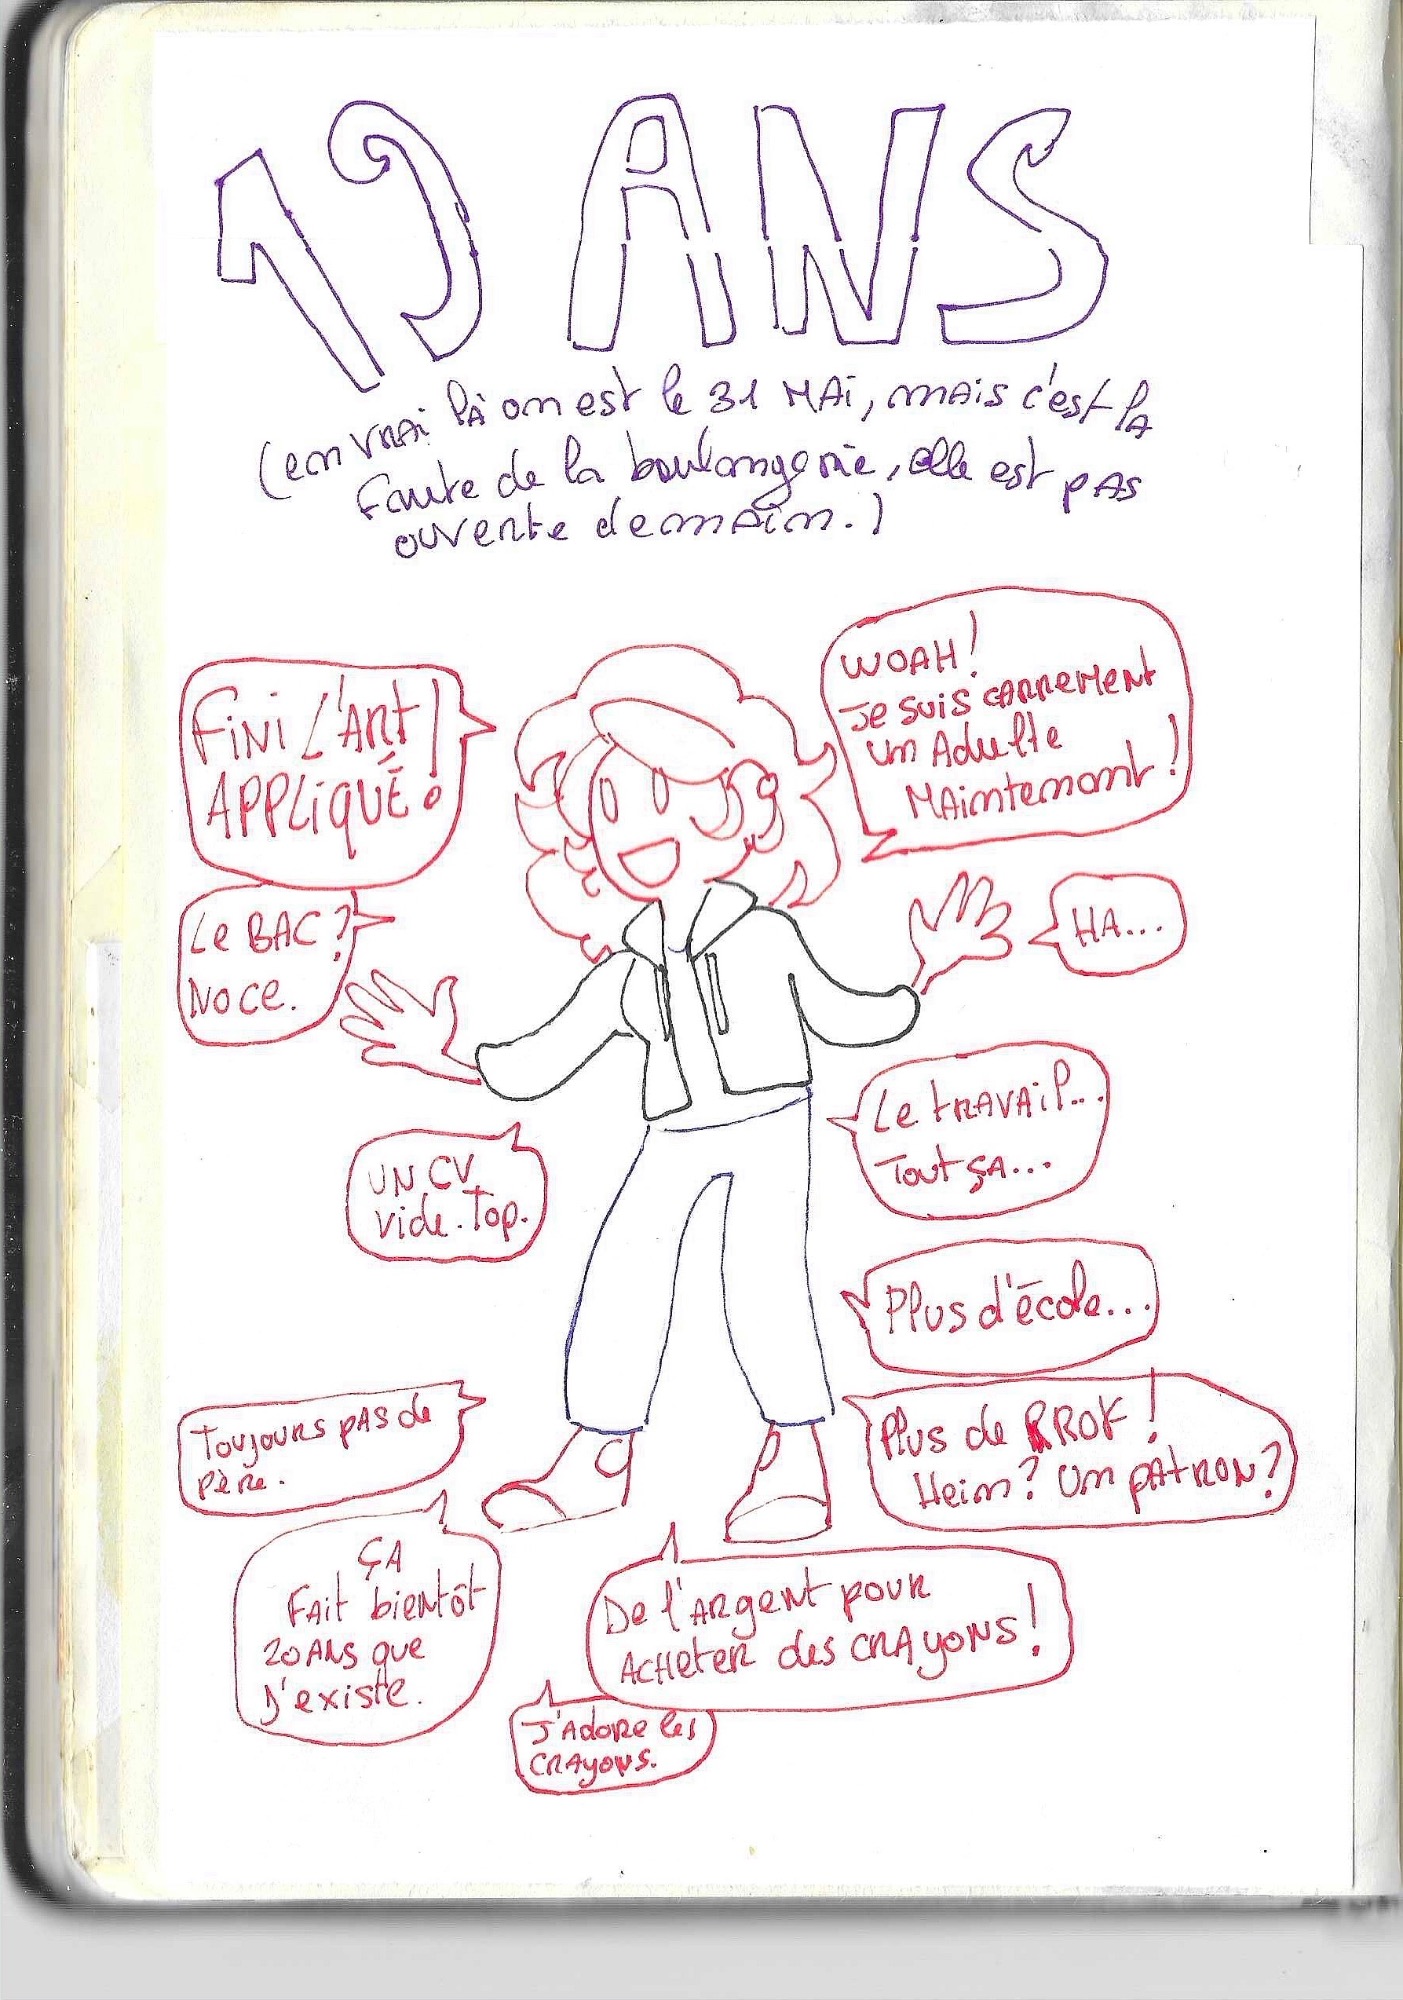 19 ANS
(en vrai là on est le 31 MAi, mais c'est la
faute de la boulangerie, elle est pas
ouverte demain.)
Fini l'Art
APPLiqUÉ !
WOAH !
Je suis carrément
un Adulte
MAintenant !
Le BAC ?
NOCE.
HA...
Le travail...
Tout ça...
UN CV
vide. Top.
Plus d'école...
Toujours pas de
père.
Plus de PROF !
Hein ? Un patron ?
ÇA
Fait bientôt
20 ANS que
J'existe.
De l'argent pour
acheter des crayons !
J'adore les
crayons.